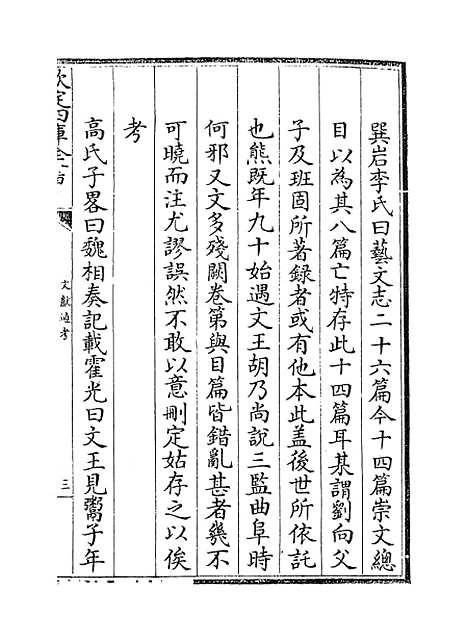 巽岩李氏曰藝文志二十六篇今十四篇崇文總
目以為其八篇亡特存此十四篇耳某謂劉向父
子及班固所著録者或有他本此蓋後世所依託
也熊既年九十始遇文王胡乃尚說三監曲阜時
何邪又文多殘闕卷第與目篇皆錯亂甚者幾不
可曉而注尤謬誤然不敢以意刪定姑存之以俟
考
高氏子畧曰魏相奏記載霍光曰文王見鬻子年
欽定四庫全書
文獻通考
三